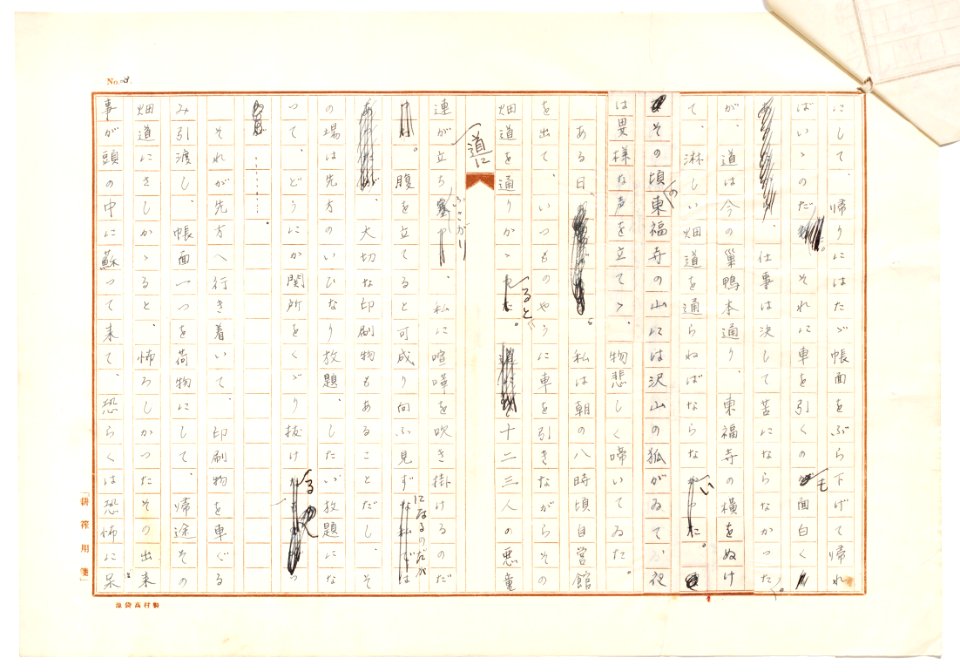 No. 8
にして、帰りにはたゞ帳面をぶら下げて帰れ
ばいゝのだ それに車を引くのも面白く
仕事は決して苦にならなかつた。
が、道は今の巣鴨本通り、東福寺の横をぬけ
て、淋しい畑道を通らねばならない。
その頃(の)東福寺の山には沢山の狐がゐて 夜
は異様な声を立てゝ、物悲しく啼いてゐた。
ある日、私は朝の八時頃自営館
を出て、いつものやうに車を引きながらその
畑道を通りかゝると、十二三人の悪童
道に
連が立ち塞がり、私に喧嘩を吹き掛けるのだ
。腹を立てると可成り向ふ見ずになるのだが
大切な印刷物もあることだし、そ
の場は先方のいひなり放題、したい放題にな
つて、どうにか関所をくゞり抜ける
……。
それが先方へ行き着いて、印刷物を車ぐる
み引渡し、帳面一つを荷物にして、帰途その
畑道にさしかゝると、怖ろしかつたその出来
事が頭の中に蘇つて来て、恐らくは恐怖に呆
「耕箒用箋」